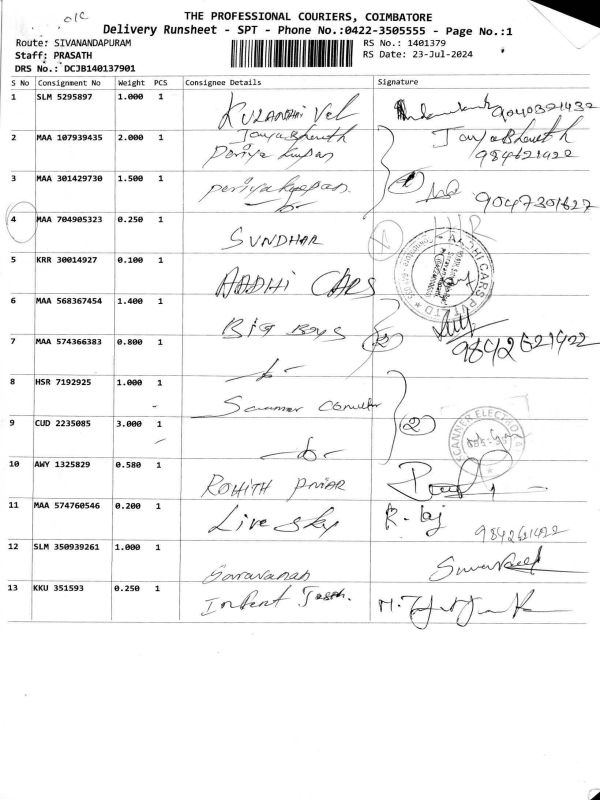 O/C
THE PROFESSIONAL COURIERS, COIMBATORE
Delivery Runsheet - SPT - Phone No.:0422-3505555 - Page No.:1
Route: SIVANANDAPURAM RS No.: 1401379
Staff: PRASATH RS Date: 23-Jul-2024
DRS No.: DCJB140137901
S No Consignment No Weight PCS Consignee Details Signature
1 SLM 5295897 1.000 1 KULANDHAI Vel
2 MAA 107939435 2.000 1 JayaBharath JayaBharath
Periya 984621422
3 MAA 301429730 1.500 1 1 9047301627
4 MAA 704905323 0.250 1 SUNDHAR
5 KRR 30014927 0.100 1 AADHI CARS
6 MAA 568367454 1.400 1 Big Boys
7 MAA 574366383 0.800 1 2 9842621422
8 HSR 7192925 1.000 1 Scanner
9 CUD 2235085 3.000 1 2 SCANNER
10 AWY 1325829 0.580 1 ROHITH
11 MAA 574760546 0.200 1 Live sky R. 9842621422
12 SLM 350939261 1.000 1 Saravanan
13 KKU 351593 0.250 1 Infent